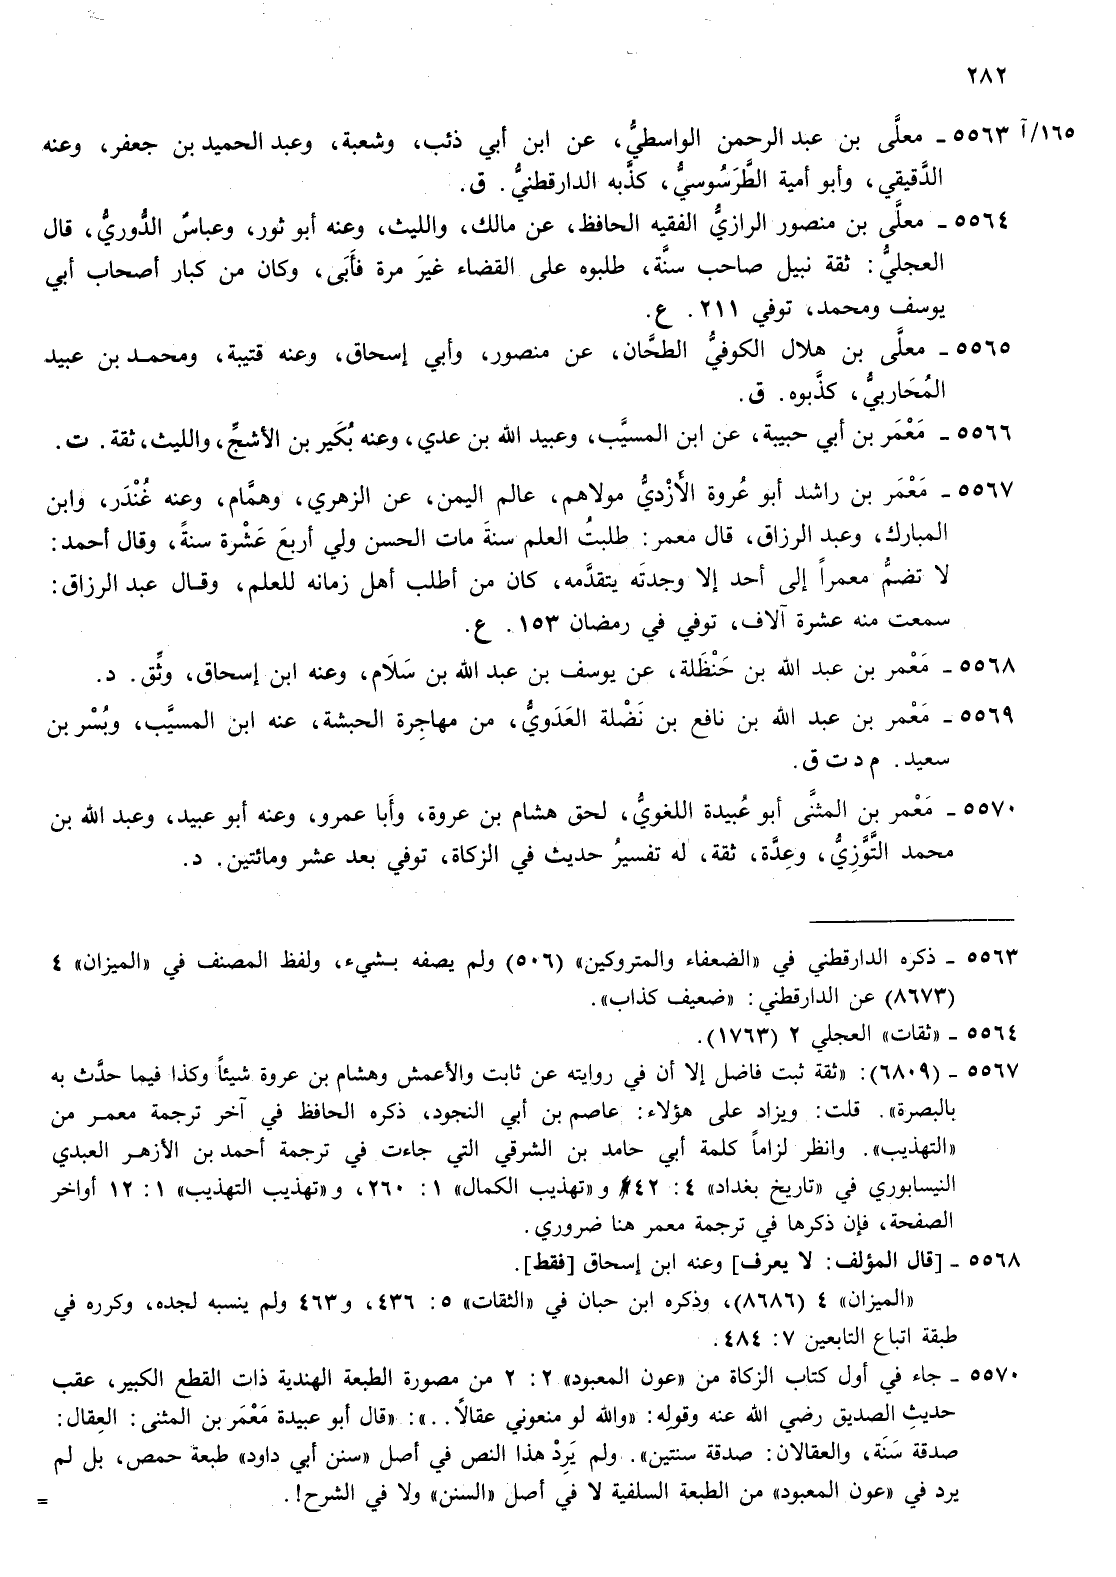 ٢٨٢
١٦٥/آ ٥٥٦٣ ـ معلَّى بن عبد الرحمن الواسطيُّ، عن ابن أبي ذئب، وشعبة، وعبد الحميد بن جعفر، وعنه
الدَّقيقي، وأبو أمية الطَّرَسُوسيُّ، كذَّبه الدارقطنيُّ. ق.
٥٥٦٤ ـ معلَّى بن منصور الرازيُّ الفقيه الحافظ، عن مالك، والليث، وعنه أبو ثور، وعباسٌ الدُّوريُّ، قال
العجليُّ: ثقة نبيل صاحب سنَّة، طلبوه على القضاء غيرَ مرة فأَبَى، وكان من كبار أصحاب أبي
يوسف ومحمد، توفي ٢١١. ع.
٥٥٦٥ ـ معلَّى بن هلال الكوفيُّ الطحَّان، عن منصور، وأبي إسحاق، وعنه قتيبة، ومحمد بن عبيد
المُحَاربيُّ، كذَّبوه. ق.
٥٥٦٦ ـ مَعْمَر بن أبي حبيبة، عن ابن المسيَّب، وعبيد الله بن عدي، وعنه بُكَير بن الأشجِّ، والليث، ثقة. ت.
٥٥٦٧ ـ مَعْمَر بن راشد أبو عُروة الأَزْديُّ مولاهم، عالم اليمن، عن الزهري، وهمَّام، وعنه غُنْدَر، وابن
المبارك، وعبد الرزاق، قال معمر: طلبتُ العلم سنةَ مات الحسن ولي أربعَ عَشْرة سنةً، وقال أحمد:
لا تضمُّ معمراً إلى أحد إلا وجدتَه يتقدَّمه، كان من أطلب أهل زمانه للعلم، وقال عبد الرزاق:
سمعت منه عشرة آلاف، توفي في رمضان ١٥٣. ع.
٥٥٦٨ ـ مَعْمر بن عبد الله بن حَنْظَلة، عن يوسف بن عبد الله بن سَلَام، وعنه ابن إسحاق، وثِّق. د.
٥٥٦٩ ـ مَعْمر بن عبد الله بن نافع بن نَضْلة العَدَويُّ، من مهاجِرة الحبشة، عنه ابن المسيَّب، وبُسْر بن
سعيد. م د ت ق.
٥٥٧٠ ـ مَعْمر بن المثنَّى أبو عُبيدة اللغويُّ، لحق هشام بن عروة، وأَبا عمرو، وعنه أبو عبيد، وعبد الله بن
محمد التَّوَّزِيُّ، وعِدَّة، ثقة، له تفسيرُ حديث في الزكاة، توفي بعد عشر ومائتين. د.
٥٥٦٣ ـ ذكره الدارقطني في «الضعفاء والمتروكين» (٥٠٦) ولم يصفه بشيء، ولفظ المصنف في «الميزان» ٤
(٨٦٧٣) عن الدارقطني: «ضعيف كذاب».
٥٥٦٤ ـ «ثقات» العجلي ٢ (١٧٦٣).
٥٥٦٧ ـ (٦٨٠٩): «ثقة ثبت فاضل إلا أن في روايته عن ثابت والأعمش وهشام بن عروة شيئاً وكذا فيما حدَّث به
بالبصرة». قلت: ويزاد على هؤلاء: عاصم بن أبي النجود، ذكره الحافظ في آخر ترجمة معمر من
«التهذيب». وانظر لزاماً كلمة أبي حامد بن الشرقي التي جاءت في ترجمة أحمد بن الأزهر العبدي
النيسابوري في «تاريخ بغداد» ٤: ٤٢ و«تهذيب الكمال» ١: ٢٦٠، و«تهذيب التهذيب» ١: ١٢ أواخر
الصفحة، فإن ذكرها في ترجمة معمر هنا ضروري.
٥٥٦٨ ـ [قال المؤلف: لا يعرف] وعنه ابن إسحاق [فقط].
«الميزان» ٤ (٨٦٨٦)، وذكره ابن حبان في «الثقات» ٥: ٤٣٦، و٤٦٣ ولم ينسبه لجده، وكرره في
طبقة اتباع التابعين ٧: ٤٨٤.
٥٥٧٠ ـ جاء في أول كتاب الزكاة من «عون المعبود» ٢: ٢ من مصورة الطبعة الهندية ذات القطع الكبير، عقب
حديث الصديق رضي الله عنه وقولِه: «والله لو منعوني عقالاً..»: «قال أبو عبيدة مَعْمَر بن المثنى: العِقال:
صدقة سَنَة، والعقالان: صدقة سنتين». ولم يَرِدْ هذا النص في أصل «سنن أبي داود» طبعة حمص، بل لم
يرد في «عون المعبود» من الطبعة السلفية لا في أصل «السنن» ولا في الشرح!.
=